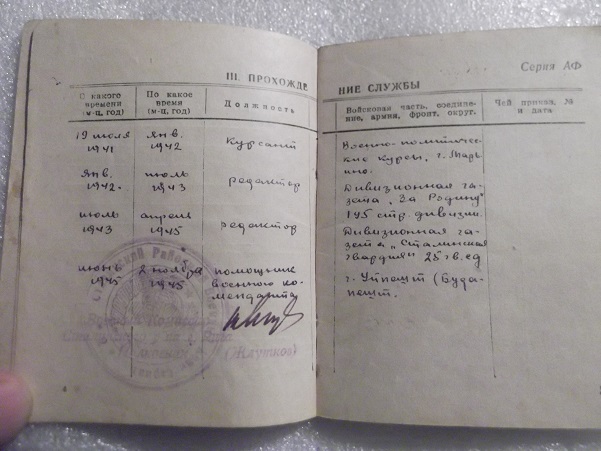 III. ПРОХОЖДЕ
С какого времени (м-ц, год)
По какое время (м-ц, год)
Должность
19 июля 1941
янв. 1942
Курсант
янв. 1942.
июль 1943
редактор
июль 1943
апрель 1945
редактор
июнь 1945
2 ноября 1945
помощник
военного ко-
менданта
4
НИЕ СЛУЖБЫ
Серия АФ
Войсковая часть, соедине-
ние, армия, фронт, округ.
Чей приказа, №
и дата
Военно-политичес-
кие курсы, г.
Дивизионная га-
зета „За Родину"
195 стр. дивизии.
Дивизионная га-
зета „Сталинская
гвардия" 25 гв. сд
г. Уйпешт (Буда-
пешт.